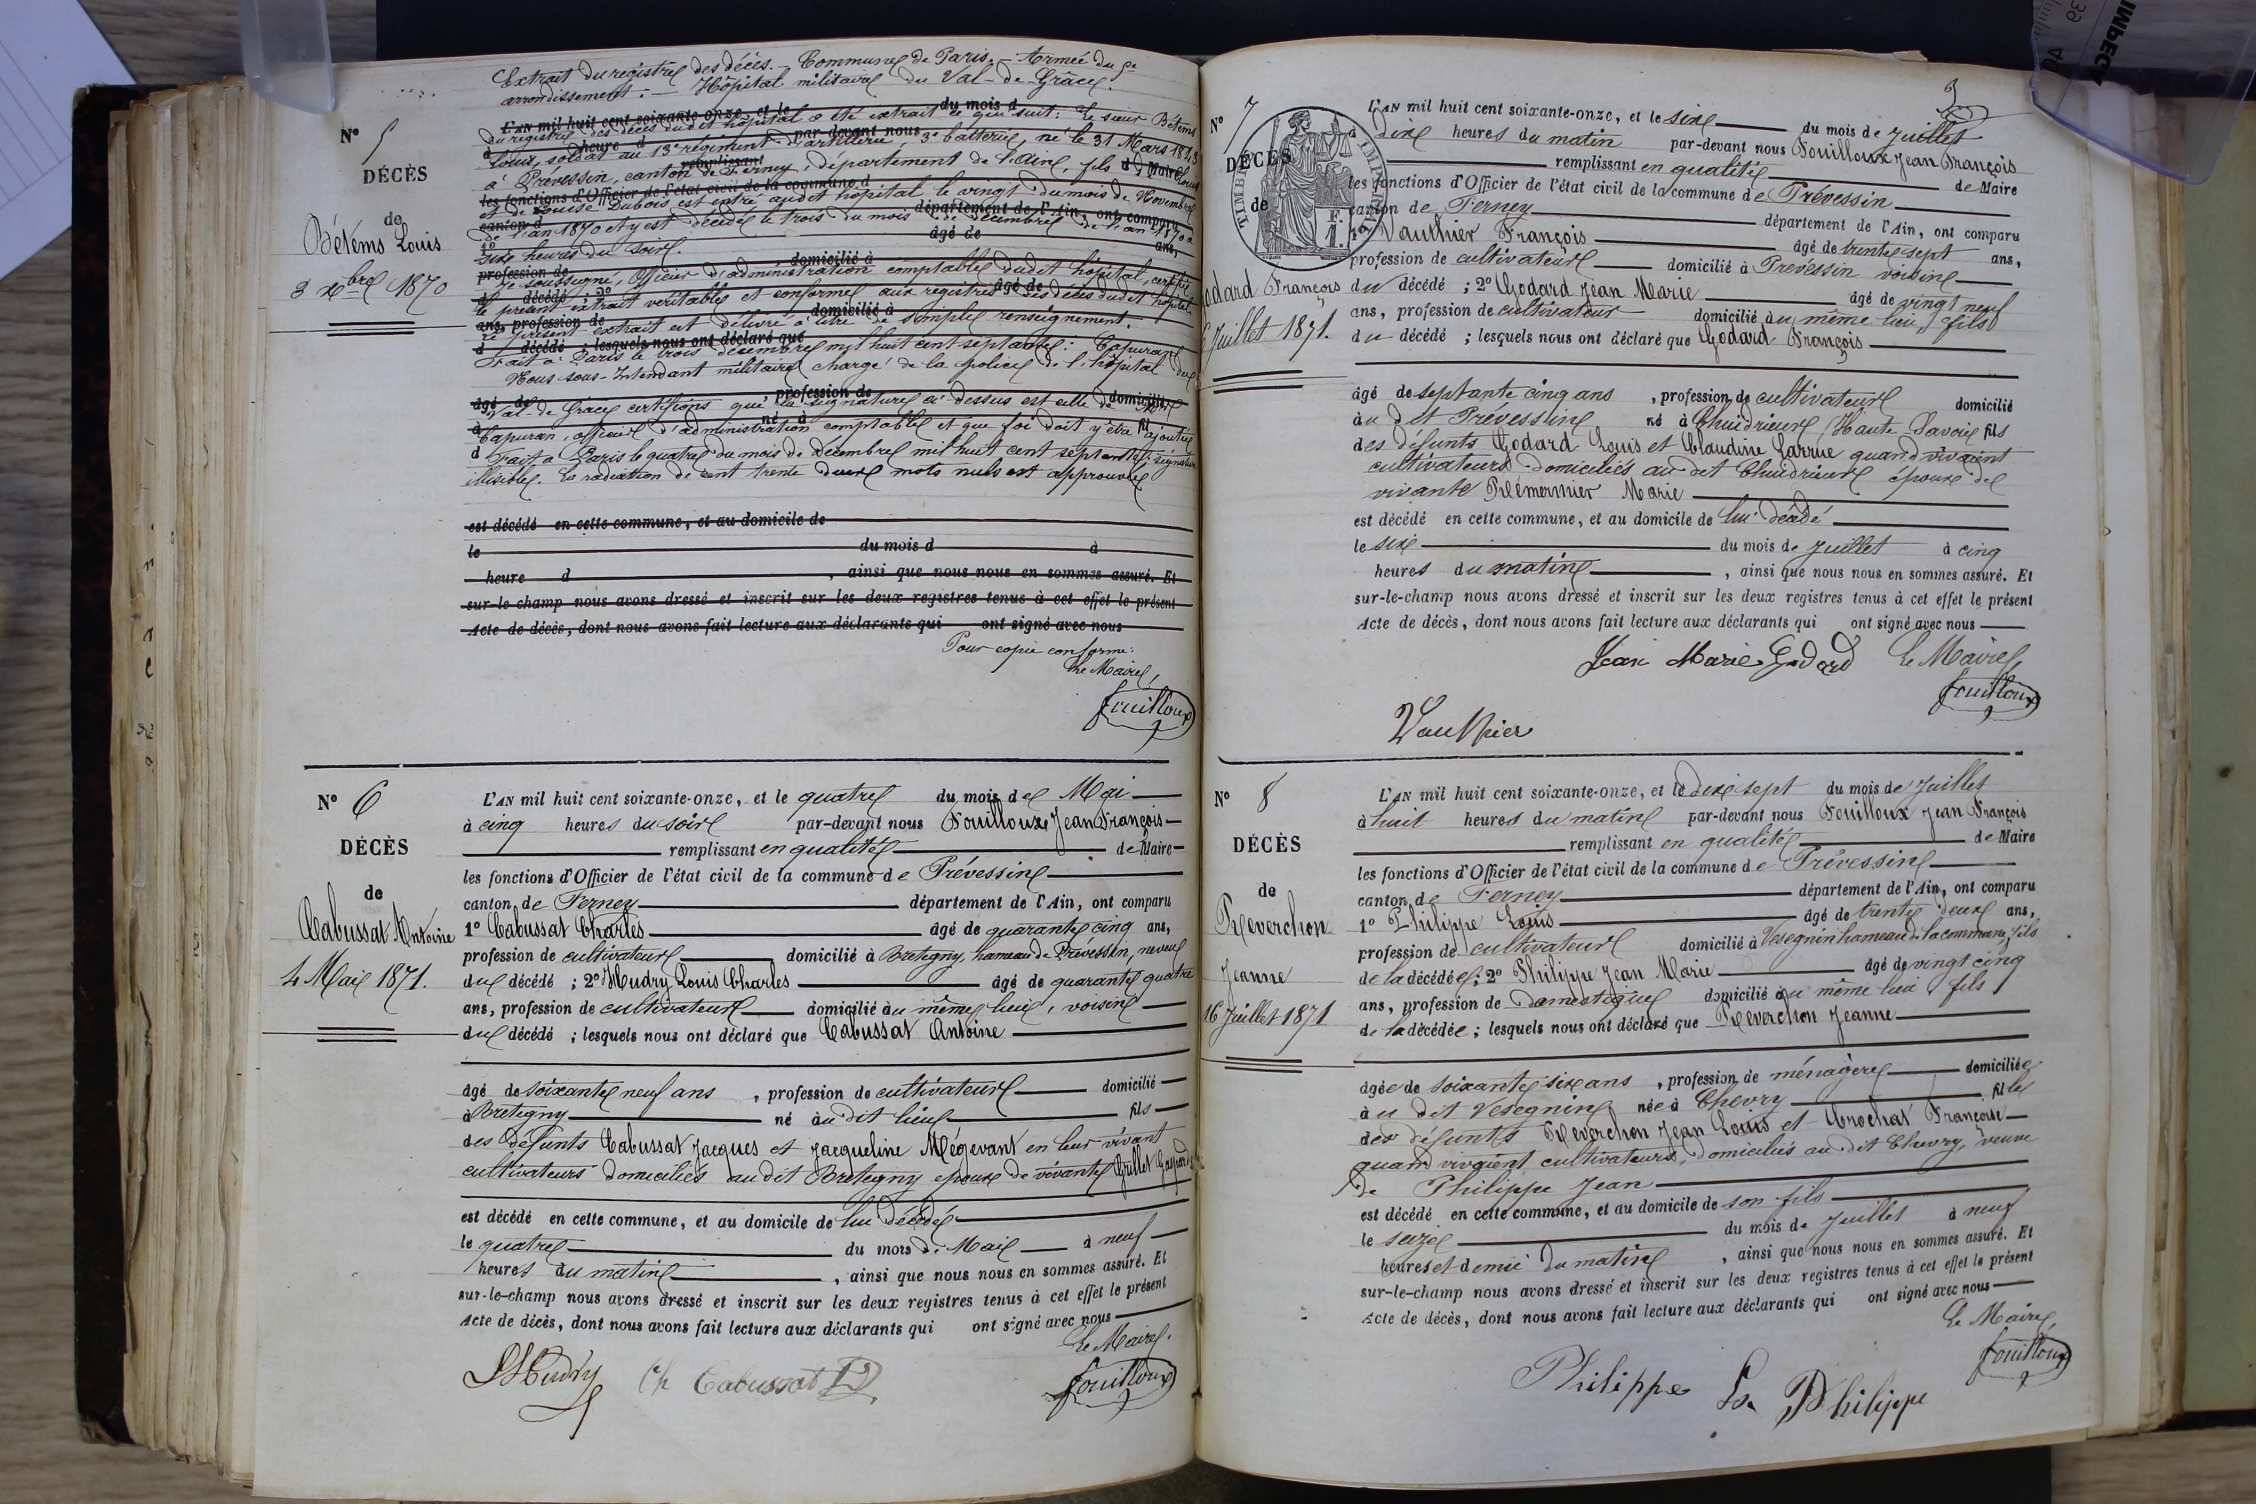 Extrait du registre des décès. - Commune de Paris. - Armée du 5e
arrondissement. - Hôpital militaire du Val-de-Grâce.
N° 5
DÉCÈS
de
Bétems Louis
3 Xbre 1870
L'AN mil huit cent soixante-onze, et le du mois d
du registre des décès dudit hôpital a été extrait ce qui suit : Le sieur Bétems
à heure d par-devant nous
Louis, soldat au 13e régiment d'artillerie, 3e batterie, né le 31 Mars
remplissant
à Prévessin, canton de Ferney, département de l'Ain, fils de Louis
les fonctions d'Officier de l'état civil de la commune d
et de Louise Dubois, est entré audit hôpital le vingt du mois de Novembre
canton d département de l'Ain, ont comparu
de l'an 1870 et y est décédé le trois du mois de décembre de l'an 1870 à
1° âgé de ans,
six heures du soir.
profession de domicilié à
Je soussigné, Officier d'administration comptable dudit hôpital, certifie
d décédé ; 2° âgé de
le présent extrait véritable et conforme aux registres des décès dudit hôpital
ans, profession de domicilié à
Le présent extrait est délivré à titre de simple renseignement.
d décédé ; lesquels nous ont déclaré que
Fait à Paris le trois décembre mil huit cent septante : Capuran
Nous sous-Intendant militaire chargé de la police de l'hôpital du
âgé de profession de domicilié
Val-de-Grâce certifions que la signature ci-dessus est celle de Mr
à né à fil
Capuran, officier d'administration comptable et que foi doit y être ajoutée
d Fait à Paris le quatre du mois de décembre mil huit cent septante : signature
illisible. La radiation de cent trente deux mots nuls est approuvée
est décédé en cette commune, et au domicile de
le du mois d à
heure d , ainsi que nous nous en sommes assuré. Et
sur-le-champ nous avons dressé et inscrit sur les deux registres tenus à cet effet le présent
Acte de décès, dont nous avons fait lecture aux déclarants qui ont signé avec nous
Pour copie conforme :
Le Maire,
Fouilloux
N° 6
DÉCÈS
de
Cabussat Antoine
4 Mai 1871.
L'AN mil huit cent soixante-onze, et le quatre du mois de Mai
à cinq heures du soir par-devant nous Fouilloux Jean François
remplissant en qualité de Maire
les fonctions d'Officier de l'état civil de la commune de Prévessin
canton de Ferney département de l'Ain, ont comparu
1° Cabussat Charles âgé de quarante cinq ans,
profession de cultivateur domicilié à Bretigny, hameau de Prévessin, neveu
du décédé ; 2° Hudry Louis Charles âgé de quarante quatre
ans, profession de cultivateur domicilié au même lieu, voisin
du décédé ; lesquels nous ont déclaré que Cabussat Antoine
âgé de soixante neuf ans , profession de cultivateur domicilié
à Bretigny né au dit lieu fils
des défunts Cabussat Jacques et Jacqueline Mégevant en leur vivant
cultivateurs domiciliés au dit Bretigny époux de vivante Grillet Gaspard
est décédé en cette commune, et au domicile de lui décédé
le quatre du mois de Mai à neuf
heures du matin , ainsi que nous nous en sommes assuré. Et
sur-le-champ nous avons dressé et inscrit sur les deux registres tenus à cet effet le présent
Acte de décès, dont nous avons fait lecture aux déclarants qui ont signé avec nous
Le Maire.
LHudry Ch Cabussat Fouilloux
3
N° 7
DÉCÈS
de
Godard François
6 Juillet 1871.
TIMBRE IMPERIAL
L'AN mil huit cent soixante-onze, et le six du mois de Juillet
à dix heures du matin par-devant nous Fouilloux Jean François
remplissant en qualité de Maire
les fonctions d'Officier de l'état civil de la commune de Prévessin
canton de Ferney département de l'Ain, ont comparu
1° Vauthier François âgé de trente sept ans,
profession de cultivateur domicilié à Prévessin voisin
du décédé ; 2° Godard Jean Marie âgé de vingt neuf
ans, profession de cultivateur domicilié au même lieu, fils
du décédé ; lesquels nous ont déclaré que Godard François
âgé de septante cinq ans , profession de cultivateur domicilié
au dit Prévessin né à Chuidrieux (Haute-Savoie fils
des défunts Godard Louis et Claudine Larrue quand vivaient
cultivateurs domiciliés au dit Chuidrieux époux de
vivante Prémermier Marie
est décédé en cette commune, et au domicile de lui décédé
le six du mois de Juillet à cinq
heures du matin , ainsi que nous nous en sommes assuré. Et
sur-le-champ nous avons dressé et inscrit sur les deux registres tenus à cet effet le présent
Acte de décès, dont nous avons fait lecture aux déclarants qui ont signé avec nous
Jean Marie Godard Le Maire,
Fouilloux
Vauthier
N° 8
DÉCÈS
de
Reverchon
Jeanne
16 Juillet 1871
L'AN mil huit cent soixante-onze, et le dix sept du mois de Juillet
à huit heures du matin par-devant nous Fouilloux Jean François
remplissant en qualité de Maire
les fonctions d'Officier de l'état civil de la commune de Prévessin
canton de Ferney département de l'Ain, ont comparu
1° Philippe Louis âgé de trente deux ans,
profession de cultivateur domicilié à Vesegnin hameau de la commune, fils
de la décédée ; 2° Philippe Jean Marie âgé de vingt cinq
ans, profession de domestique domicilié au même lieu fils
de la décédée ; lesquels nous ont déclaré que Reverchon Jeanne
âgée de soixante six ans , profession de ménagère domiciliée
au dit Vesegnin née à Chevry fille
des défunts Reverchon Jean Louis et Crochat Françoise
quand vivaient cultivateurs, domiciliés au dit Chevry, veuve
de Philippe Jean
est décédé en cette commune, et au domicile de son fils
le seize du mois de Juillet à neuf
heures et demie du matin , ainsi que nous nous en sommes assuré. Et
sur-le-champ nous avons dressé et inscrit sur les deux registres tenus à cet effet le présent
Acte de décès, dont nous avons fait lecture aux déclarants qui ont signé avec nous
Le Maire,
Fouilloux
Philippe Ls Philippe